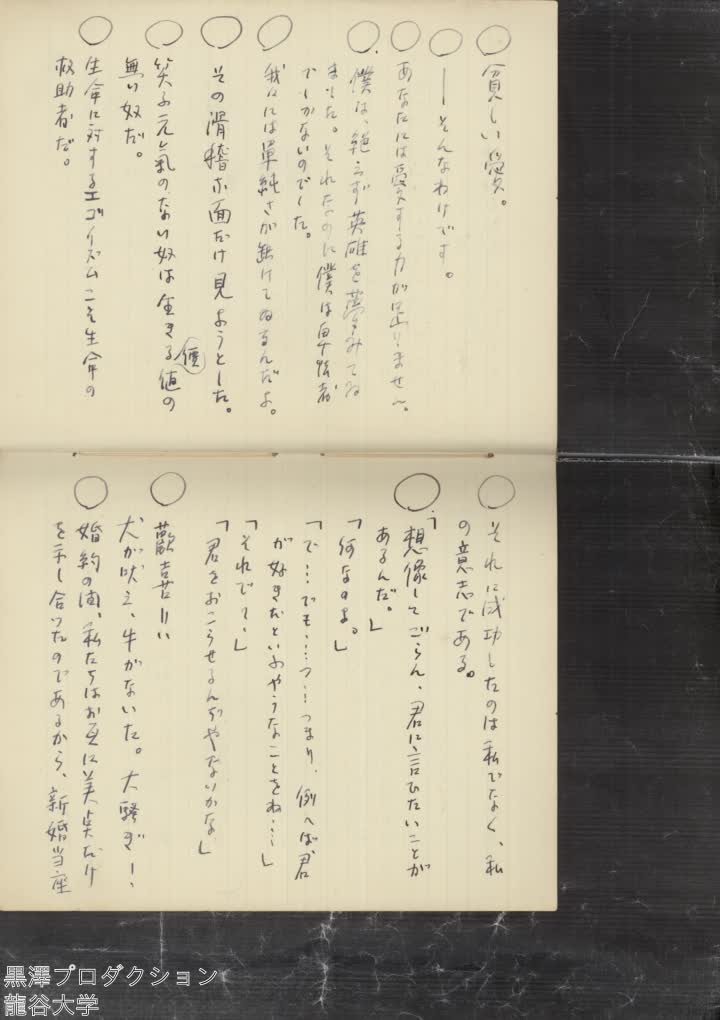 ○ 貧しい愛。
○ ―そんなわけです。
○ あなたには愛する力が足りません。
○ 僕は、絶えず英雄を夢みてゐ
ました。それなのに僕は卑怯者
でしかないのでした。
○ 我々には単純さが缺けてゐるんだよ。
○ その滑稽な面だけ見ようとした。
○ 笑ふ元氣のない奴は生きる値の
價
無い奴だ。
○ 生命に対するエゴイズムこそ生命の
救助者だ。
○ それに成功したのは私でなく、私
の意志である。
○ 「想像してごらん、君に言ひたいことが
あるんだ。」
「何なのよ。」
「で…でも……つ…つまり、例へば君
が好きだといふやうなことをね……」
「それでて、」
「君をおこらせるんぢやないかな」
○
犬が吠え、牛がないた。大騒ぎ！、
○ 婚約の間、私たちはお互に美点だけ
を示し合つたのであるから、新婚当座
黒澤プロダクション
龍谷大学